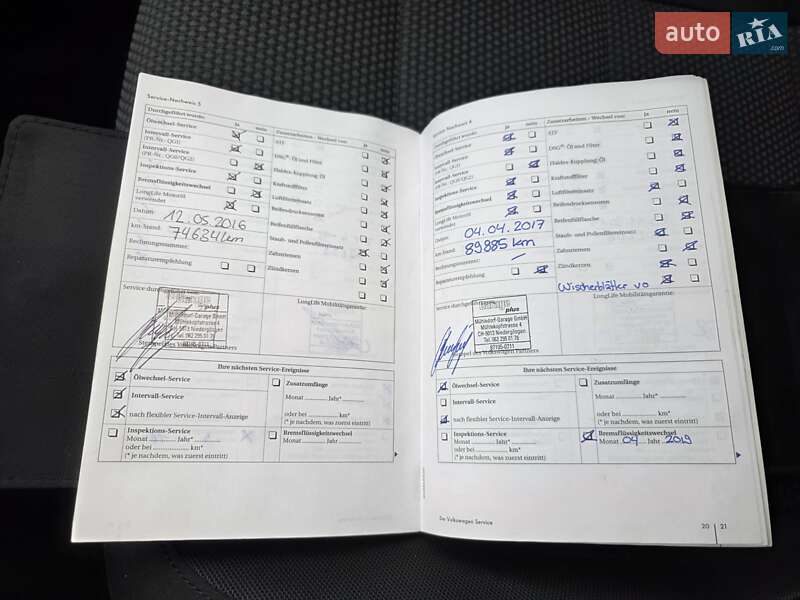 auto RIA.com
Service-Nachweis 5
Durchgeführt wurde: ja nein Zusatzarbeiten - Wechsel von: ja nein
Ölwechsel-Service ATF
Intervall-Service
(PR-Nr.: QG1) DSG®: Öl und Filter
Intervall-Service
(PR-Nr.: QG0/QG2) Haldex-Kupplung-Öl
Inspektions-Service Kraftstofffilter
Bremsflüssigkeitswechsel Luftfiltereinsatz
LongLife Motoröl
verwendet Reifendrucksensoren
Datum: 12.05.2016 Reifenfüllflasche
km-Stand: 74634 km Staub- und Pollenfiltereinsatz
Rechnungsnummer: Zahnriemen
Reparaturempfehlung Zündkerzen
Service durchgeführt LongLife Mobilitätsgarantie:
plus
Mühledorf-Garage GmbH
Mühlekopfstrasse 4
5013 Niedergösgen
Tel. 062 295 51 75
Stempel des Volkswagen Partners
Ihre nächsten Service-Ereignisse
Ölwechsel-Service Zusatzumfänge
Intervall-Service Monat Jahr*
nach flexibler Service-Intervall-Anzeige oder bei km*
(* je nachdem, was zuerst eintritt)
Inspektions-Service Bremsflüssigkeitswechsel
Monat Jahr* Monat Jahr
oder bei km*
(* je nachdem, was zuerst eintritt)
Service-Nachweis 6
Durchgeführt wurde: ja nein Zusatzarbeiten - Wechsel von: ja nein
Ölwechsel-Service ATF
Intervall-Service
(PR-Nr.: QG1) DSG®: Öl und Filter
Intervall-Service
(PR-Nr.: QG0/QG2) Haldex-Kupplung-Öl
Inspektions-Service Kraftstofffilter
Bremsflüssigkeitswechsel Luftfiltereinsatz
LongLife Motoröl
verwendet Reifendrucksensoren
Datum: 04.04.2017 Reifenfüllflasche
km-Stand: 89885 km Staub- und Pollenfiltereinsatz
Rechnungsnummer: Zahnriemen
Reparaturempfehlung Zündkerzen
Wischerblätter vo
Service durchgeführt LongLife Mobilitätsgarantie:
plus
Mühledorf-Garage GmbH
Mühlekopfstrasse 4
CH-5013 Niedergösgen
Tel. 062 295 51 75
Stempel des Volkswagen Partners
Ihre nächsten Service-Ereignisse
Ölwechsel-Service Zusatzumfänge
Intervall-Service Monat Jahr*
nach flexibler Service-Intervall-Anzeige oder bei km*
(* je nachdem, was zuerst eintritt)
Inspektions-Service Bremsflüssigkeitswechsel
Monat Jahr* Monat 04 Jahr 2019
oder bei km*
(* je nachdem, was zuerst eintritt)
Der Volkswagen Service 20 21